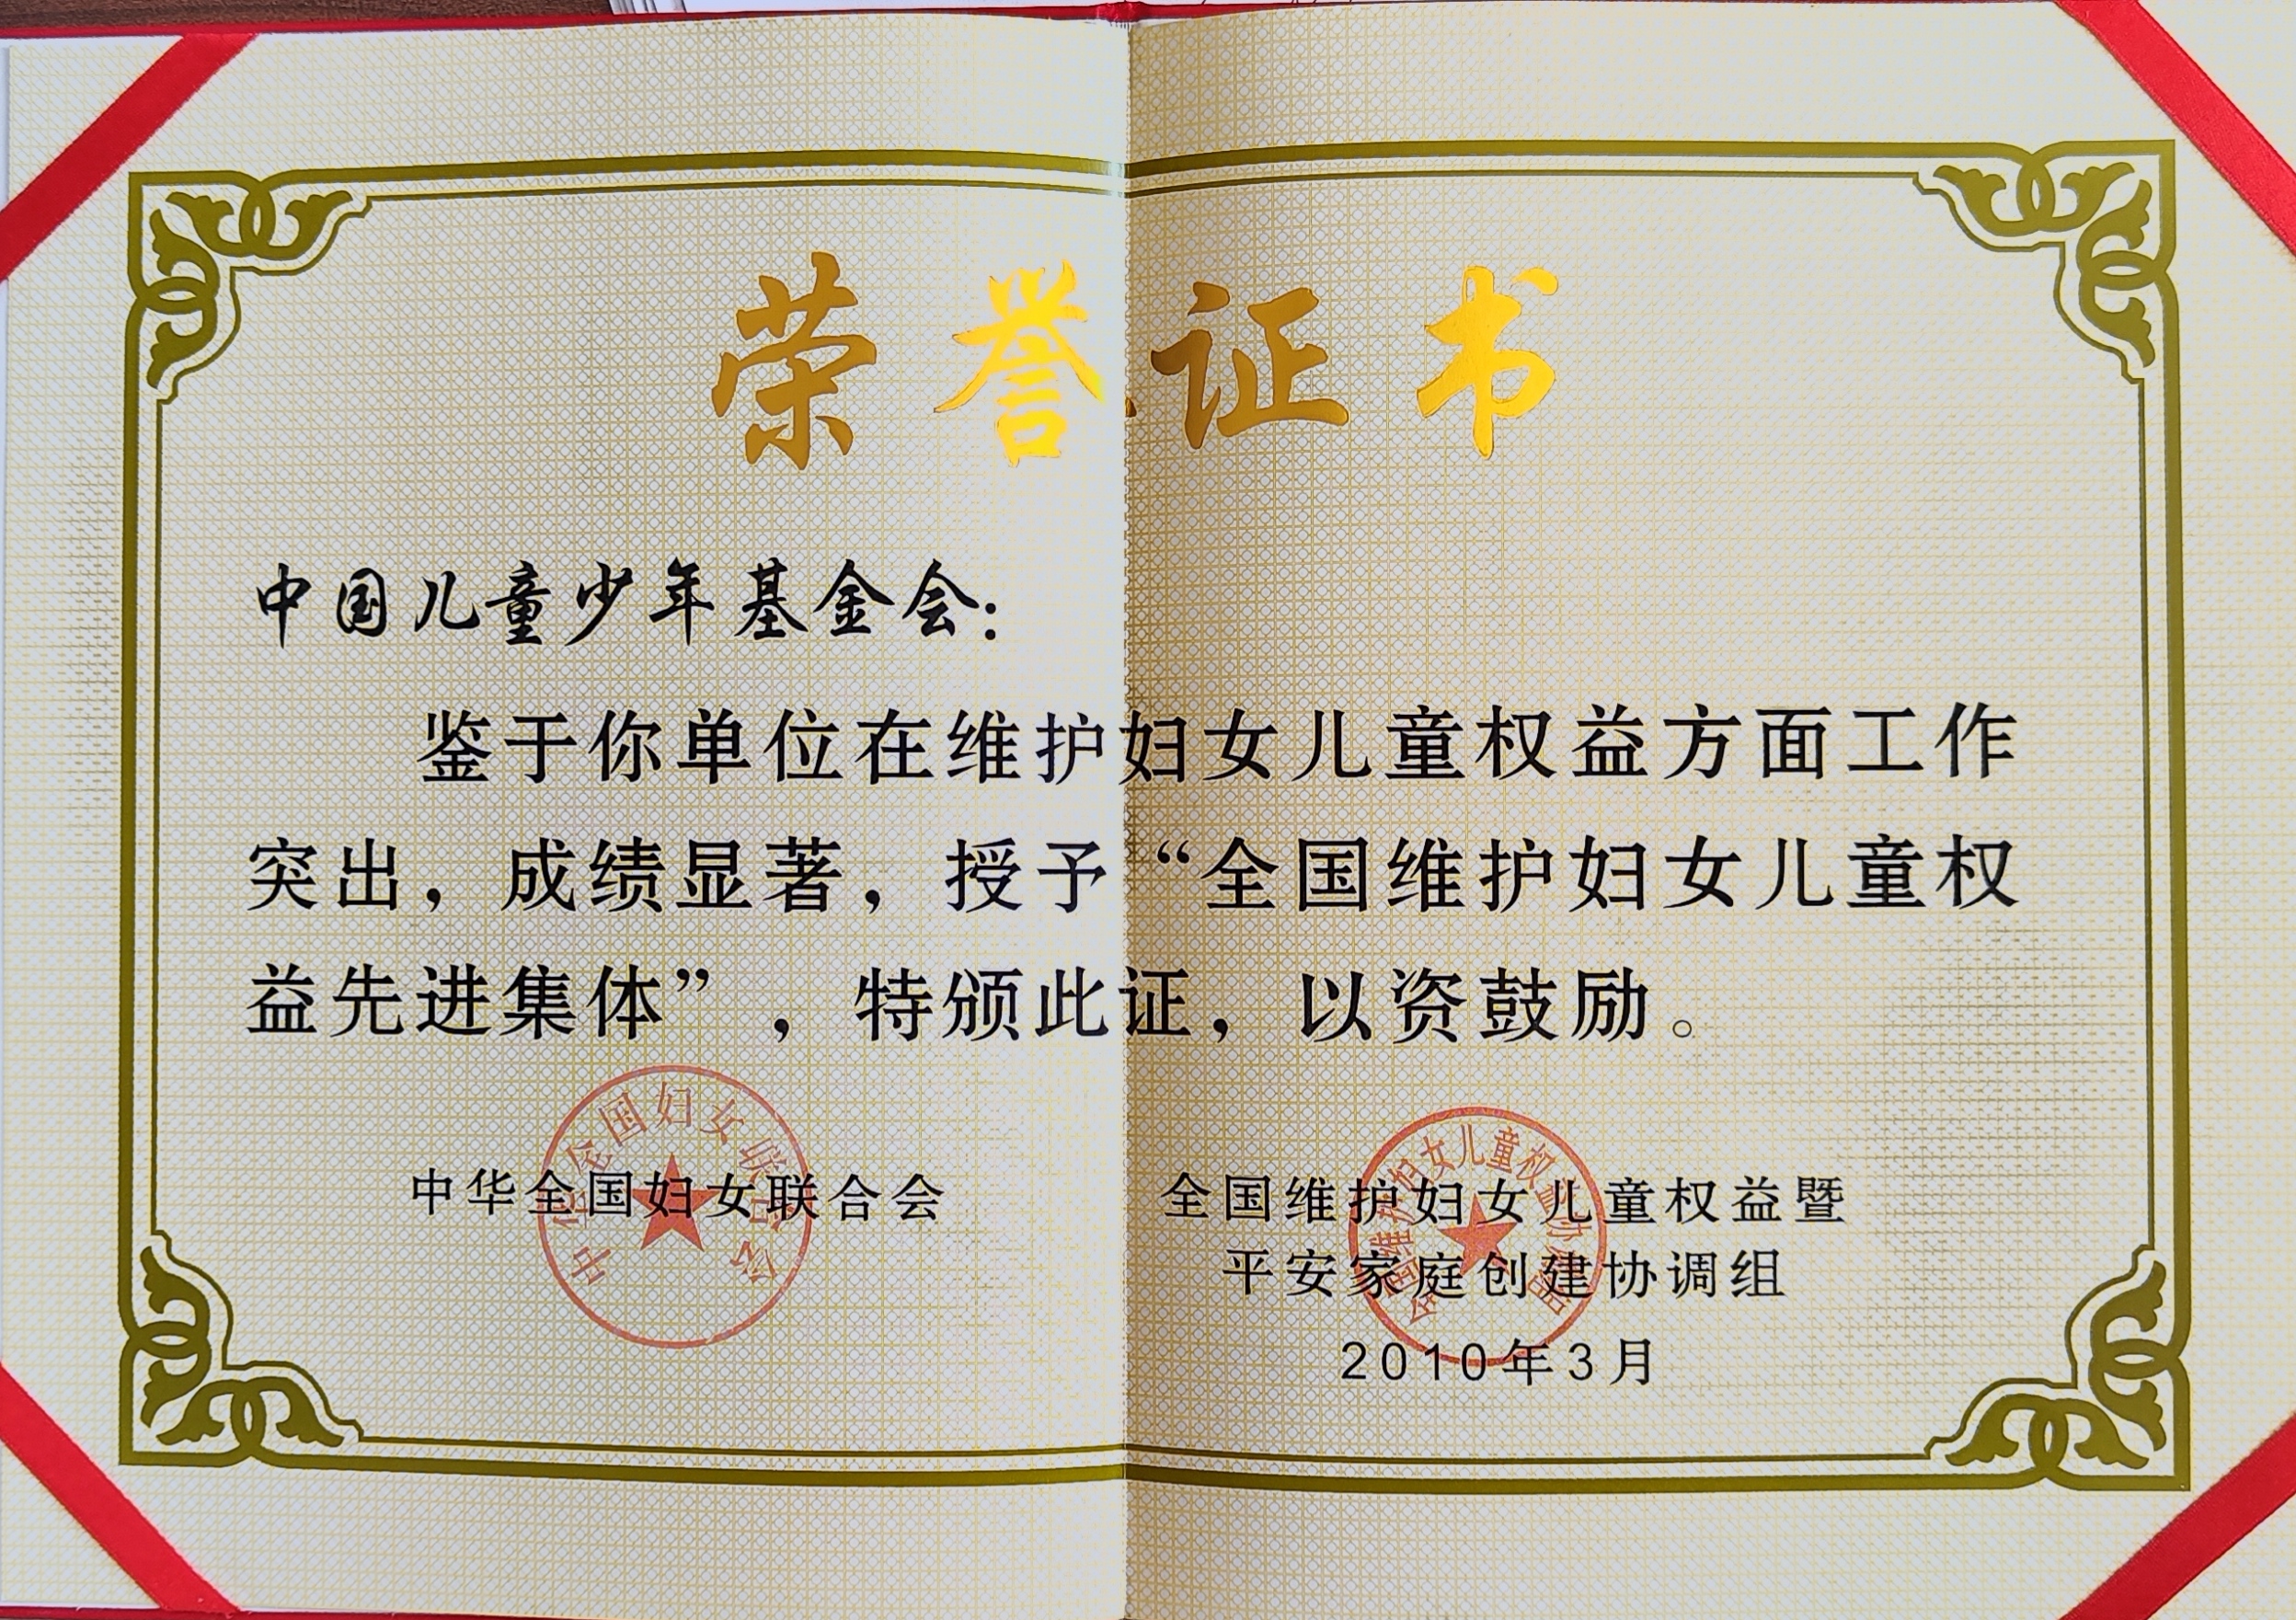 荣誉证书
中国儿童少年基金会：
鉴于你单位在维护妇女儿童权益方面工作
突出，成绩显著，授予“全国维护妇女儿童权
益先进集体”，特颁此证，以资鼓励。
中华全国妇女联合会
中华全国妇女联合会
全国维护妇女儿童权益暨
平安家庭创建协调组
全国维护妇女儿童权益协调组
2010年3月